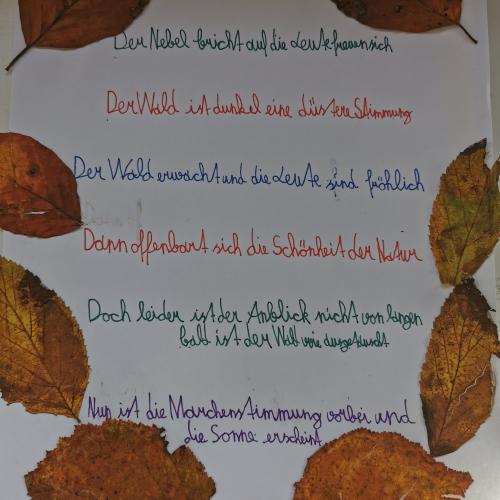 Der Nebel bricht auf die Leute freuen sich
Der Wald ist dunkel eine düstere Stimmung
Der Wald erwacht und die Leute sind fröhlich
Dann offenbart sich die Schönheit der Natur
Doch leider ist der Anblick nicht von langen
bald ist der Wald wie ausgetauscht
Nun ist die Märchenstimmung vorbei und
die Sonne erscheint